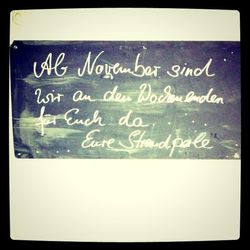 Ab November sind
wir an den Wochenenden
für Euch da,
Eure Strandperle